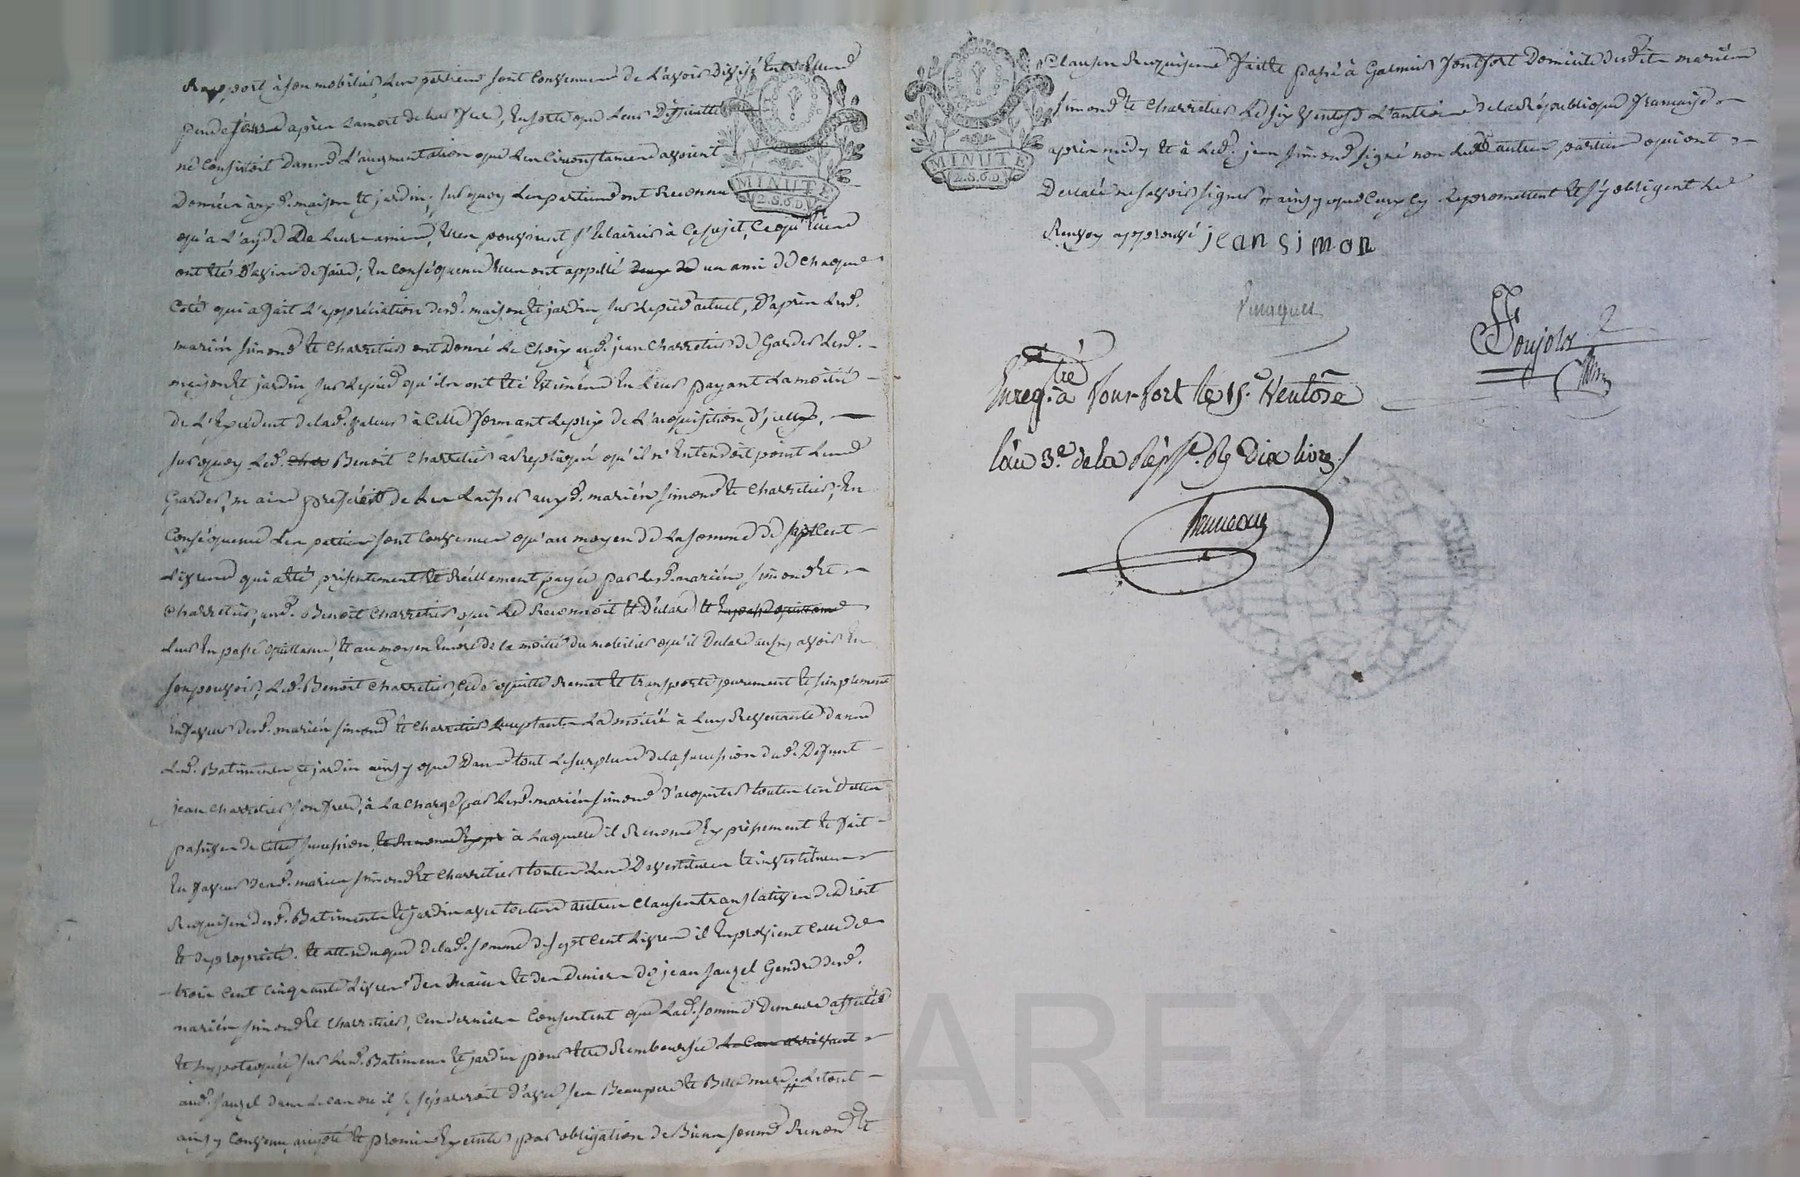 Rapport à son mobilier, les parties sont convenues de l'avoir divisé entr'elles
peu de jours après la mort de leur frere, en sorte que leur difficulté
ne consistoit dans l'augmentation que les circonstances avoient
Donnée auxd. maison et jardin; sur quoy les parties ont reconnu
qu'a l'ayde De leurs amis, elles pouvoient s'éclairer à ce sujet, ce qu'elles
ont été d'avis de faire; en conséquence elles ont appellé un ami de chaque
Coté qui a fait l'appréciation desd. maison et jardin sur le pied actuel, D'après lesd.
mariés Simond et Charretier ont donné le choix aud. jean Charretier de Garder lesd.
maison et jardin sur le pied qu'ils ont été estimés en leur payant la moitié
de l'Excédent de lad. valeur à celle formant le prix de l'acquisition d'jceux,
surquoy led. Benoit Charretier a repliqué qu'il n'Entendoit point les
Garder, mais préféroit de les laisser auxd. mariés Simond et Charretier; En
Conséquence les parties sont convenues qu'au moyen de la somme de sept cent
Livres qui a été présentement et réellement payée par lesd. mariés Simond et
Charretier, aud. Benoit Charretier qui le Reconnoit et déclare et
leur en passe quittance, et au moyen encore de la moitié du mobilier qu'il declare aussy avoir en
son pouvoir, led. Benoit Charretier, cede quitte remet et transporte purement et simplement
En faveur desd. mariés Simond et Charretier acceptants La moitié à Luy Revenante dans
Led. Batiments et jardin ainsy que dans tout le surplus de la succession dud. Defunt
jean Charretier son frere, à La charge par lesd. mariés Simond d'acquitter toutes les dettes
passives de cette succession, à Laquelle il Renonce Expressement et fait
En faveur desd. mariés Simond et Charretier toutes Les Devestitures et investitures
Requises desd. Batiments et jardin avec toutes autres clauses translatives de Droit
et de propriété. Et attendu que de lad. somme de sept cent Livres il En provient celle de
trois cent cinquante Livres des mains et des deniers de jean Sauzel Gendre desd.
mariés Simond et Charretier, ces derniers consentent que Lad. somme Demeure affectée
et hypotequée sur Lesd. Batiments et jardin pour être Remboursée
aud. Sauzel dans le cas ou il se sépareroit d'avec ses Beaupere et Bellemere; Le tout
ainsy convenu accepté et promis Executer par obligation de Biens soumis Renonce et
Clauses Requises Faitte passé à Galmier Fontfort Domicile desdits mariés
Simond et Charretier Le six ventose L'an troisieme de la République française
après midy Et à led. jean Simond signé non les autres parties qui ont
Declaré ne savoir signer ainsy que Ceux cy Le promettent et s'y obligent Le
Renvoy approuvé jean simon
Enreg.tré à Fonfort le 15.e Ventôse
l'an 3.e de la Rép. Rç Dix livres
MINUTE
2.S.6.D.
MINUTE
2.S.6.D.
CHAREYRON